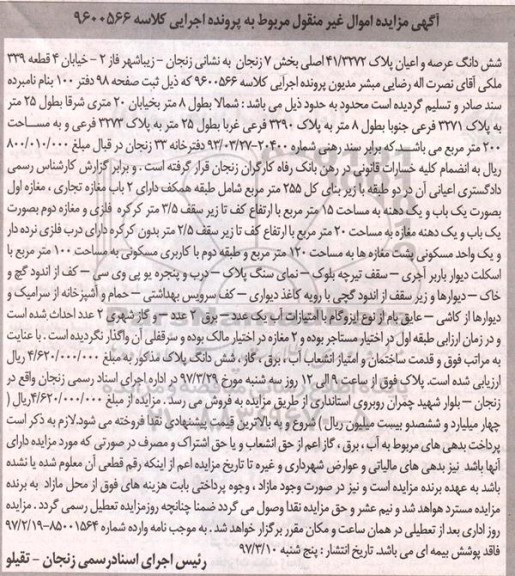 آگهی مزایده اموال غیر منقول مربوط به پرونده اجرایی کلاسه ۹۶۰۰۵۶۶
شش دانگ عرصه و اعیان پلاک ۴۱/۳۲۷۲ اصلی بخش ۷ زنجان به نشانی زنجان - زیباشهر فاز ۲ - خیابان ۴ قطعه ۳۳۹
ملکی آقای نصرت اله رضایی مبشر مدیون پرونده اجرایی کلاسه ۹۶۰۰۵۶۶ که ذیل ثبت صفحه ۹۸ دفتر ۱۰۰ بنام نامبرده
سند صادر و تسلیم گردیده است محدود به حدود ذیل می باشد : شمالا بطول ۸ متر بخیابان ۲۰ متری شرقا بطول ۲۵ متر
به پلاک ۳۲۷۱ فرعی جنوبا بطول ۸ متر به پلاک ۳۲۹۰ فرعی غربا بطول ۲۵ متر به پلاک ۳۲۷۳ فرعی و به مساحت
۲۰۰ متر مربع می باشد که برابر سند رهنی شماره ۲۰۴۰۰-۹۳/۰۳/۲۷ دفترخانه ۳۳ زنجان در قبال مبلغ ۸۰۰/۰۱۰/۰۰۰
ریال به انضمام کلیه خسارات قانونی در رهن بانک رفاه کارگران زنجان قرار گرفته است . و برابر گزارش کارشناس رسمی
دادگستری اعیانی آن در دو طبقه با زیر بنای کل ۲۵۵ متر مربع شامل طبقه همکف دارای ۲ باب مغازه تجاری ، مغازه اول
بصورت یک باب و یک دهنه به مساحت ۱۵ متر مربع با ارتفاع کف تا زیر سقف ۳/۵ متر کرکره فلزی و مغازه دوم بصورت
یک باب و یک دهنه مغازه به مساحت ۲۰ متر مربع با ارتفاع کف تا زیر سقف ۲/۵ متر بدون کرکره دارای درب فلزی نرده دار
و یک واحد مسکونی پشت مغازه ها به مساحت ۱۲۰ متر مربع و طبقه دوم با کاربری مسکونی به مساحت ۱۰۰ متر مربع با
اسکلت دیوار باربر آجری - سقف تیرچه بلوک - نمای سنگ پلاک - درب و پنجره یو پی وی سی - کف از اندود گچ و
خاک - دیوارها و زیر سقف از اندود گچی با رویه کاغذ دیواری - کف سرویس بهداشتی - حمام و آشپزخانه از سرامیک و
دیوارها از کاشی - عایق بام از نوع ایزوگام با امتیازات آب یک عدد - برق ۲ عدد - و گاز شهری ۲ عدد احداث شده است
و در زمان ارزیابی طبقه اول در اختیار مستاجر بوده و ۲ مغازه در اختیار مالک بوده و سرقفلی آن واگذار نگردیده است . با عنایت
به مراتب فوق و قدمت ساختمان و امتیاز انشعاب آب ، برق ، گاز ، شش دانگ پلاک مذکور به مبلغ ۴/۶۲۰/۰۰۰/۰۰۰ ریال
ارزیابی شده است. پلاک فوق از ساعت ۹ الی ۱۲ روز سه شنبه مورخ ۹۷/۳/۲۹ در اداره اجرای اسناد رسمی زنجان واقع در
زنجان - بلوار شهید چمران روبروی استانداری از طریق مزایده به فروش می رسد . مزایده از مبلغ ۴/۶۲۰/۰۰۰/۰۰۰ ریال (
چهار میلیارد و ششصدو بیست میلیون ریال ) شروع و به بالاترین قیمت پیشنهادی نقدا فروخته می شود.لازم به ذکر است
پرداخت بدهی های مربوط به آب ، برق ، گاز اعم از حق انشعاب و یا حق اشتراک و مصرف در صورتی که مورد مزایده دارای
آنها باشد نیز بدهی های مالیاتی و عوارض شهرداری و غیره تا تاریخ مزایده اعم از اینکه رقم قطعی آن معلوم شده یا نشده
باشد به عهده برنده مزایده است و نیز در صورت وجود مازاد ، وجوه پرداختی بابت هزینه های فوق از محل مازاد به برنده
مزایده مسترد خواهد شد و نیم عشر و حق مزایده نقدا وصول می گردد ضمنا چنانچه روزمزایده تعطیل رسمی گردد . مزایده
روز اداری بعد از تعطیلی در همان ساعت و مکان مقرر برگزار خواهد شد . به موجب نامه وارده شماره ۸۵۰۰۱۵۶۴-۹۷/۲/۱۹
فاقد پوشش بیمه ای می باشد. تاریخ انتشار : پنج شنبه ۹۷/۳/۱۰
رئیس اجرای اسنادرسمی زنجان - تقیلو